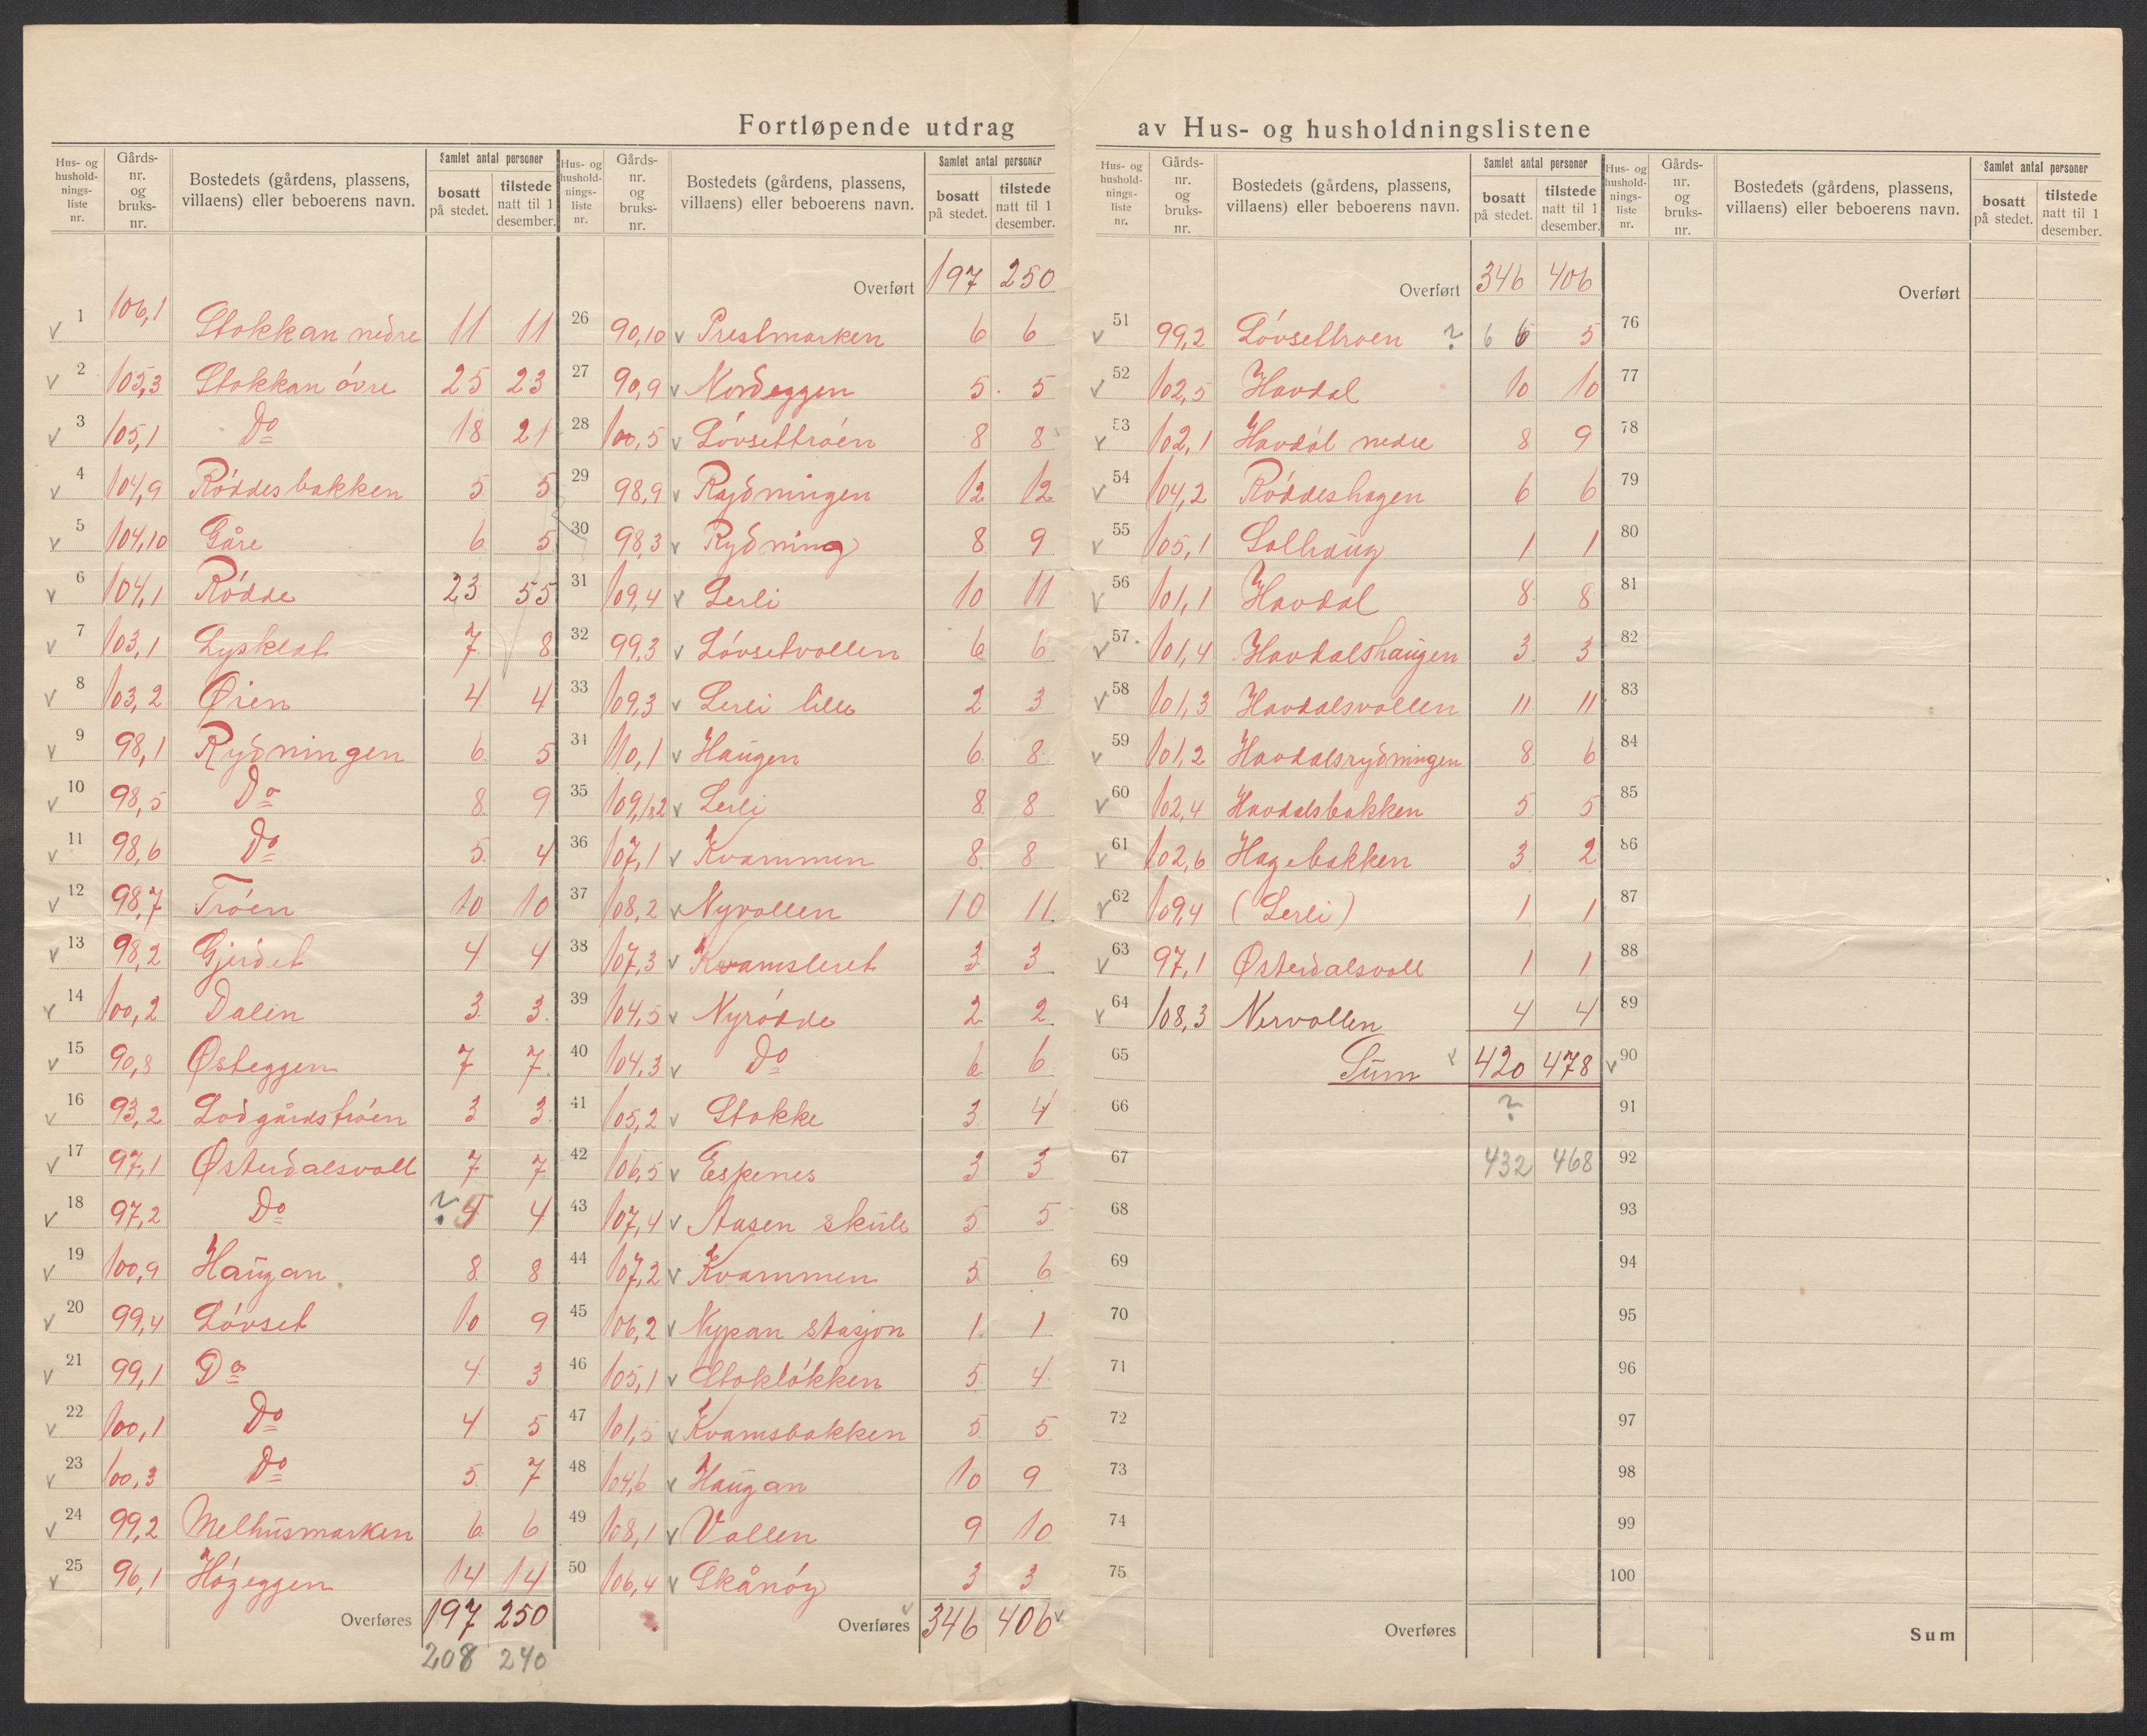 Fortløpende utdrag av Hus- og husholdningslistene
Hus- og husholdnings-liste nr. | Gårds-nr. og bruks-nr. | Bostedets (gårdens, plassens, villaens) eller beboerens navn. | Samlet antal personer | bosatt på stedet. | tilstede natt til 1 desember.
1 106,1 Stokkan nedre 11 11
2 105,3 Stokkan óvre 25 23
3 105,1 Do 18 21
4 104,9 Róddesbakken 5 5
5 104,10 Gåre 6 5
6 104,1 Ródde 23 55
7 103,1 Lysklet 7 8
8 103,2 Øien 4 4
9 98,1 Rydningen 6 5
10 98,5 Do 8 9
11 98,6 Do 5 4
12 98,7 Tróen 10 10
13 98,2 Gjerdet 4 4
14 100,2 Dalen 3 3
15 90,8 Østeggen 7 7
16 93,2 Lodgårdstróen 3 3
17 97,1 Østerdalsvoll 7 7
18 97,2 Do ? 4
19 100,9 Haugan 8 8
20 99,4 Lóvset 10 9
21 99,1 Do 4 3
22 100,1 Do 4 5
23 100,3 Do 5 7
24 99,2 Melhusmarken 6 6
25 96,1 Høgeggen 14 14
Overføres 197 250
208 240
Hus- og husholdnings-liste nr. | Gårds-nr. og bruks-nr. | Bostedets (gårdens, plassens, villaens) eller beboerens navn. | Samlet antal personer | bosatt på stedet. | tilstede natt til 1 desember.
Overført 197 250
26 90,10 v Prestmarken 6 6
27 90,9 v Nordeggen 5 5
28 100,5 v Lóvsettróen 8 8
29 98,9 v Rydningen 12 12
30 98,3 v Rydning 8 9
31 109,4 v Lerli 10 11
32 99,3 v Lóvsetvollen 6 6
33 109,3 v Lerli lille 2 3
34 110,1 v Haugen 6 8
35 109,1&2 v Lerli 8 8
36 107,1 v Kvammen 8 8
37 108,2 v Nyvollen 10 11
38 107,3 v Kvamsleret 3 3
39 104,5 v Nyródde 2 2
40 104,3 v Do 6 6
41 105,2 v Stokke 3 4
42 106,5 v Espenes 3 3
43 107,4 v Aasen skule 5 5
44 107,2 v Kvammen 5 6
45 106,2 v Nypan stasjon 1 1
46 105,1 v Stoklókken 5 4
47 101,5 v Kvamsbakken 5 5
48 104,6 v Haugan 10 9
49 108,1 v Vollen 9 10
50 106,4 v Skånóy 3 3
Overføres 346 406
Hus- og husholdnings-liste nr. | Gårds-nr. og bruks-nr. | Bostedets (gårdens, plassens, villaens) eller beboerens navn. | Samlet antal personer | bosatt på stedet. | tilstede natt til 1 desember.
Overført 346 406
51 99,2 Lóvsettroen ? 6 6 5
52 102,5 Havdal 10 10
53 102,1 Havdal nedre 8 9
54 104,2 Róddeshagen 6 6
55 105,1 Solhaug 1 1
56 101,1 Havdal 8 8
57 101,4 Havdalshaugen 3 3
58 101,3 Havdalsvollen 11 11
59 101,2 Havdalsrydningen 8 6
60 102,4 Havdalsbakken 5 5
61 102,6 Hagebakken 3 2
62 109,4 (Lerli) 1 1
63 97,1 Østerdalsvoll 1 1
64 108,3 Nervollen 4 4
65 Sum 420 478
66 ?
67 432 468
68
69
70
71
72
73
74
75
Overføres
Hus- og husholdnings-liste nr. | Gårds-nr. og bruks-nr. | Bostedets (gårdens, plassens, villaens) eller beboerens navn. | Samlet antal personer | bosatt på stedet. | tilstede natt til 1 desember.
Overført
76
77
78
79
80
81
82
83
84
85
86
87
88
89
90
91
92
93
94
95
96
97
98
99
100
Sum